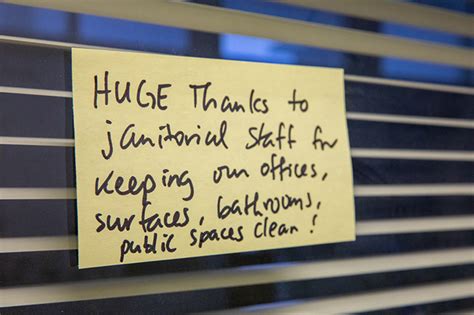 HUGE Thanks to
janitorial staff for
keeping our offices,
surfaces, bathrooms,
public spaces clean!